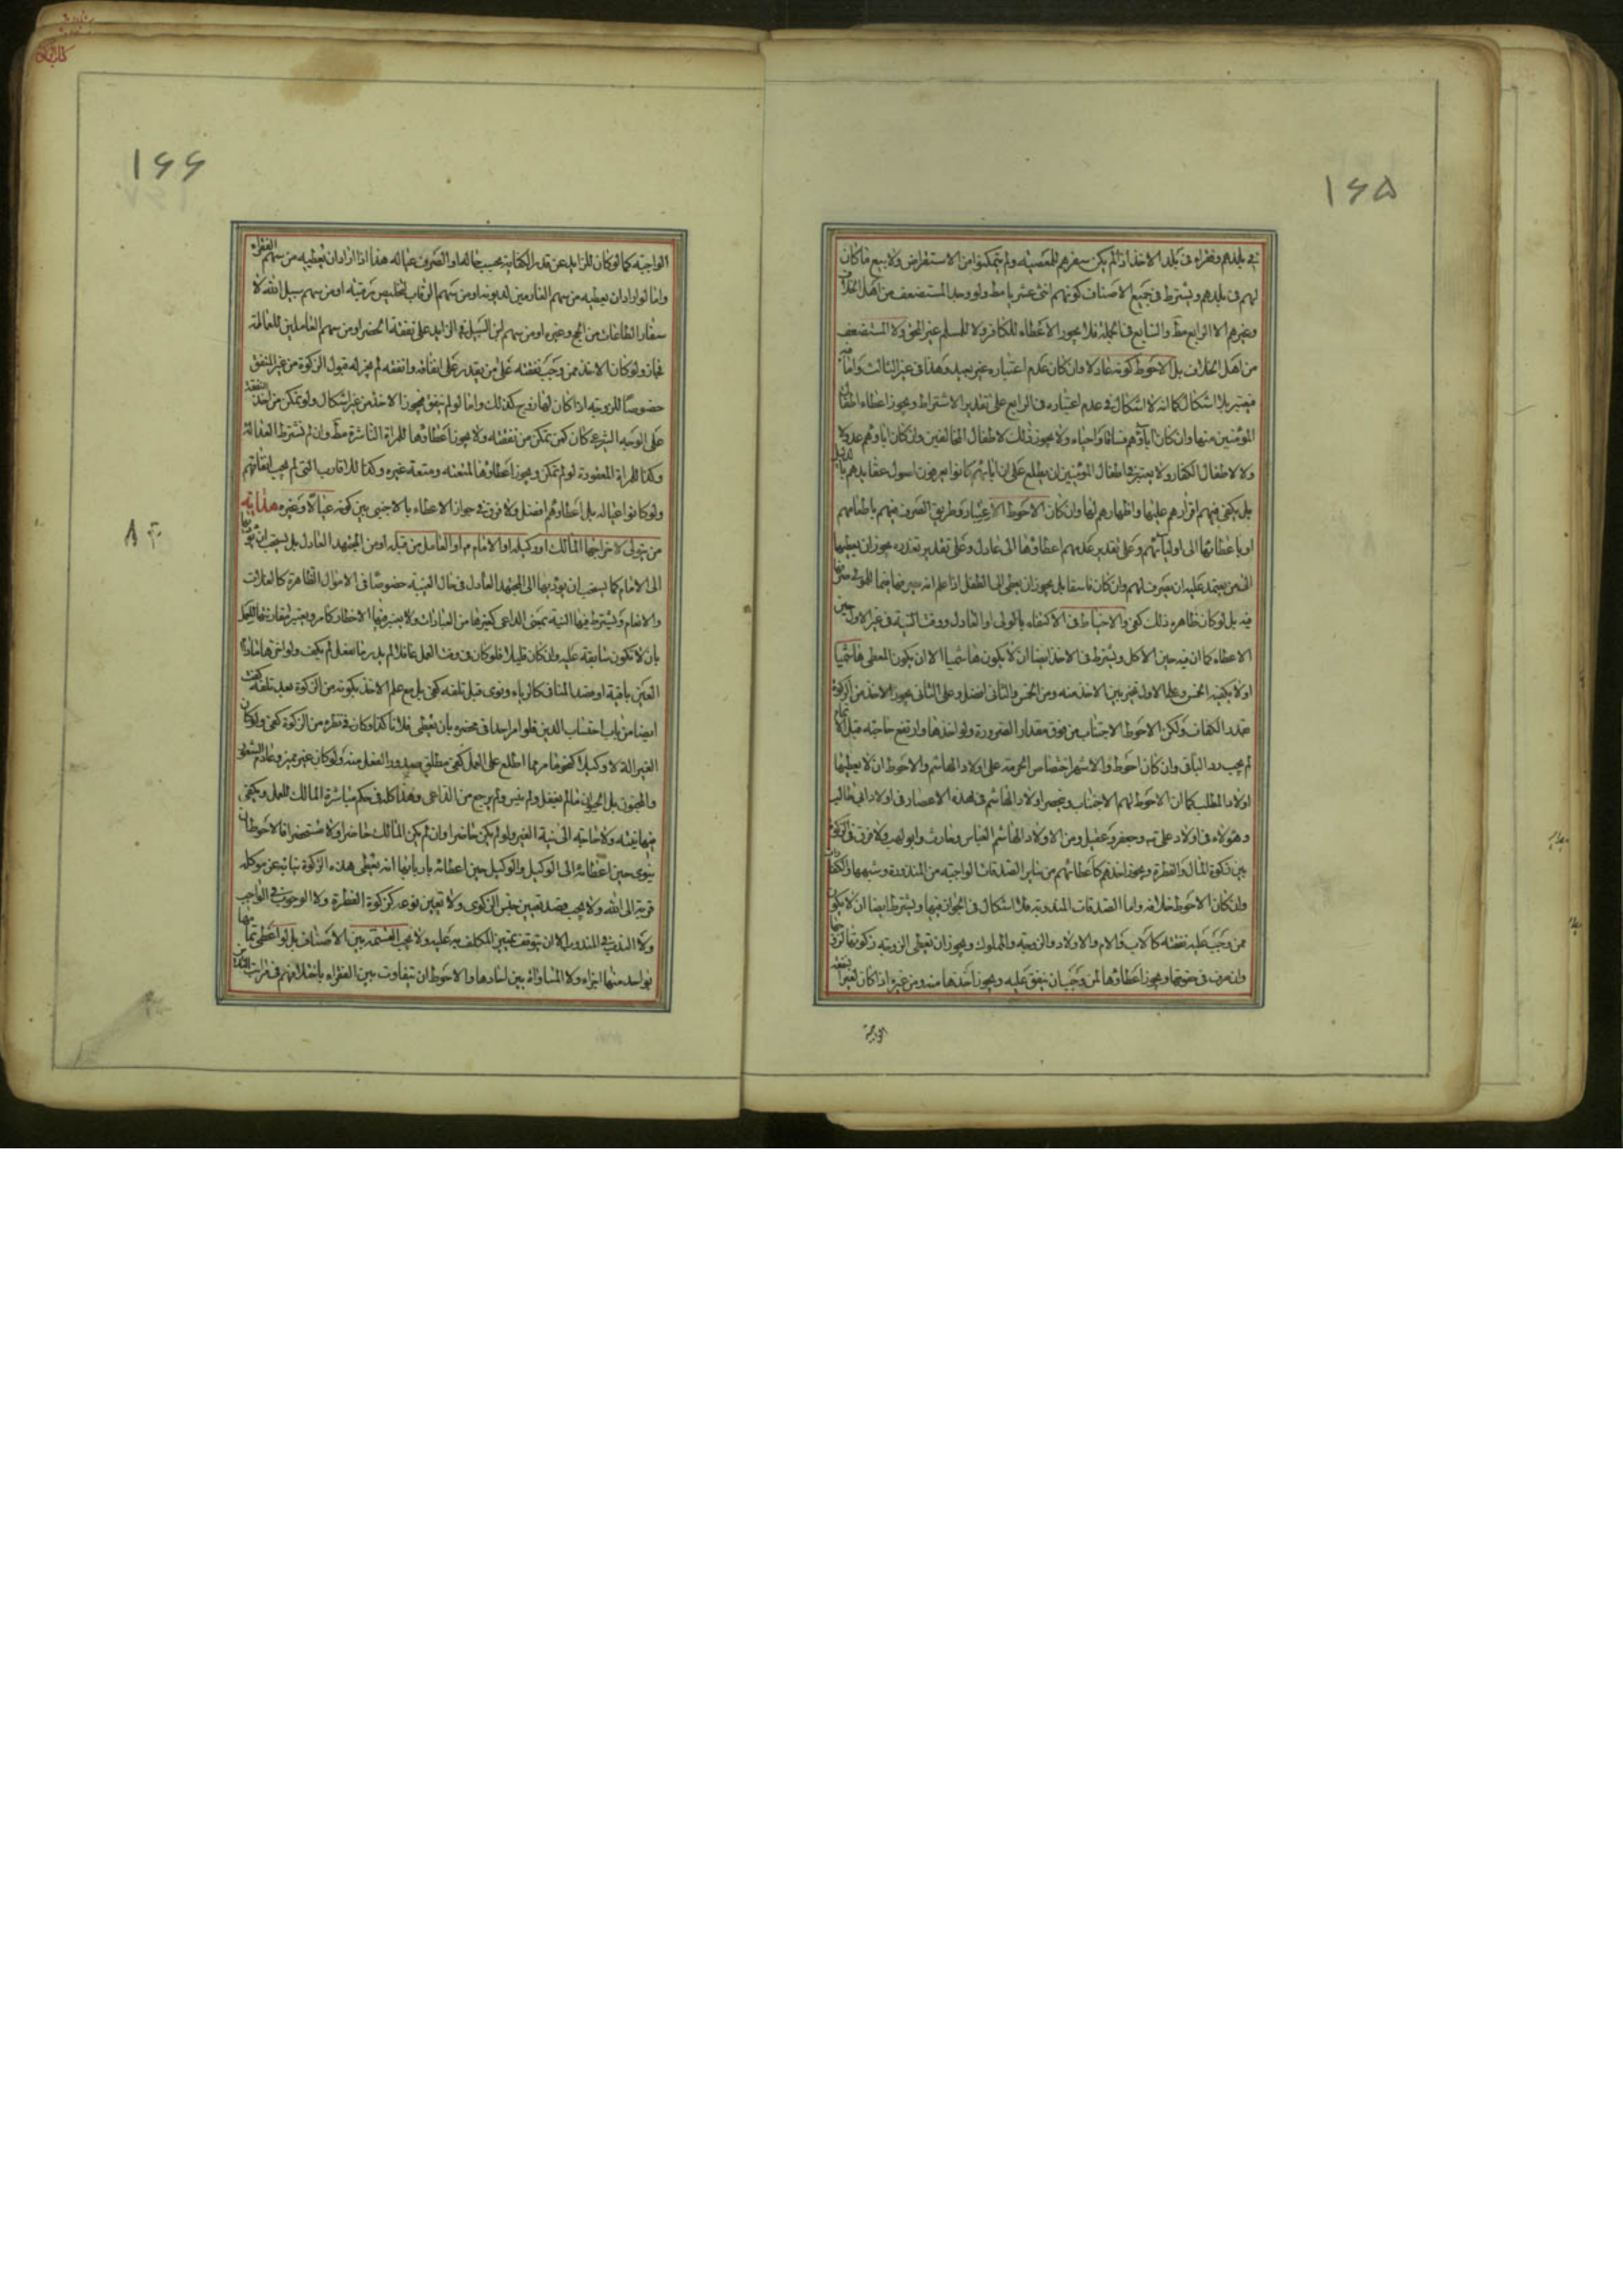 ١۶۵
في بلدهم وفقراء في بلد الاخذ اذا لم يكن سفرهم للمعصية ولم يتمكنوا من الاستقراض ولا بيع ما كان
لهم في بلدهم ويشترط في جميع الاصناف كونهم اثنى عشريا مط ولو وجد المستضعف من اهل الخلاف
وغيرهم الا الرابع مط والسابع في الجملة فلا يجوز الاعطاء للكافر ولا للمسلم غير المحق ولا المستضعف
من اهل الخلاف بل الاحوط كونه عادلا وان كان عدم اعتباره غير بعيد وهذا في غير الثالث واما فيه
فيعتبر بلا اشكال كما انه لا اشكال في عدم اعتباره في الرابع على تقدير الاشتراط ويجوز اعطاء اطفال
المؤمنين منها وان كان اباؤهم فساقا واحياء ولا يجوز ذلك لاطفال المخالفين وان كان اباؤهم عدولا
ولا لاطفال الكفار ولا يعتبر في اطفال المؤمنين ان يطلع على ان ابائهم كانوا يعرفون اصول عقايدهم بالدليل
بل يكفي فيهم اقرارهم عليها واظهارهم لها وان كان الاحوط الاعتبار وطريق الصرف فيهم باطعامهم
او باعطائها الى اوليائهم وعلى تقدير عدمهم اعطاؤها الى عادل وعلى تقدير تعذره يجوز ان يعطيها
الى من يعتمد عليه ان يصرف لهم وان كان فاسقا بل يجوز ان يعطى الى الطفل اذا علم انه يصرفها فيما للولي صرفها
فيه بل لو كان ظاهره ذلك كفى والاحتياط في الاكتفاء بالولي او العادل ووقت النية في غير الاول حين
الاعطاء كما ان فيه حين الاكل ويشترط في الاخذ ايضا ان لا يكون هاشميا الا ان يكون المعطي هاشميا
او لا يكفيه الخمس وعلى الاول تخير بين الاخذ منه ومن الخمس والثاني افضل وعلى الثاني يجوز الاخذ من الزكوة
بقدر الكفاف ولكن الاحوط الاجتناب من فوق مقدار الضرورة ولو اخذها وارتفع حاجته قبل
لم يجب رد الباقي وان كان احوط والاشهر اختصاص الحرمة على اولاد الهاشم والاحوط ان لا يعطيها
اولاد المطلب كما ان الاحوط لهم الاجتناب وينحصر اولاد الهاشم في هذه الاعصار في اولاد ابي طالب
وهؤلاء في اولاد علي وجعفر وعقيل ومن اولاد الهاشم العباس وحارث وابو لهب ولا فرق في الزكوة
بين زكوة المال والفطرة ويجوز اخذهم كاعطائهم من ساير الصدقات الواجبة من المنذورة وشبهها والكفارات
وان كان الاحوط خلافه واما الصدقات المندوبة فلا اشكال في الجواز فيها ويشترط ايضا ان لا يكون
ممن وجب عليه نفقته كالاب والام والاولاد والزوجة والمملوك ويجوز ان تعطى الزوجة زكوتها لزوجها
وان صرف في حقوقها ويجوز اعطاؤها لمن وجب ان ينفق عليه ويجوز اخذها منه ومن غيره اذا كان لغير نفقته
الواجبة
١۶۶
الواجبة كما لو كان للزايد عن قدر الكفاية بحسب حاله او الصرف عياله هذا اذا اراد ان يعطيه من سهم الفقراء
واما لو اراد ان يعطيه من سهم الغارمين لديونه او من سهم الرقاب لتخليص رقبته او من سهم سبيل الله لا
سفار الطاعات من الحج وغيره او من سهم ابن السبيل في الزايد على نفقة الحضر او من سهم العاملين للعاملة
فجاز ولو كان الاخذ ممن وجب نفقته على من يقدر على انفاقه وانفقه لم يجز له قبول الزكوة من غير المنفق
خصوصا للزوجة اذا كان لها زوج كذلك واما لو لم ينفق فيجوز الاخذ من غير اشكال ولو تمكن من اخذ النفقة
على الوجه الشرعي كان كمن يتمكن من نفقته ولا يجوز اعطاؤها للمراة الناشزة مط وان لم نشترط العدالة
وكذا للمراة المعقودة لو لم تمكن ويجوز اعطاؤها لمتعته ومتعة غيره وكذا للاقارب التي لم يجب انفاقهم
ولو كانوا عياله بل اعطاؤهم افضل ولا فرق في جواز الاعطاء بالاجنبي بين كونه عيالا وغيره هداية
من يتولى لاخراجها المالك او وكيله او الامام او العامل من قبله او من المجتهد العادل بل يستحب ان يؤديها
الى الامام كما يستحب ان يؤديها الى المجتهد العادل في حال الغيبة خصوصا في الاموال الظاهرة كالغلات
والانعام ويشترط فيها النية بمعنى الداعي كغيرها من العبادات ولا يعتبر فيها الاخطار كما مر ويعتبر مقارنتها للعمل
بان لا تكون سابقة عليه وان كان قليلا فلو كان في وقت العمل غافلا لم يدر ما يفعل لم يكف ولو اخرها
العين باقية او قصد المنافي كالرياء ونوى قبل تلفه كفى بل مع علم الاخذ بكونه من الزكوة بعد تلفه كفت
ايضا من باب احتساب الدين فلو امر احدا في محضره بان يعطي فلانا كذا وكان في نظره من الزكوة كفى ولو كان
الغير الة لا وكيلا كنحو ما مر مما اطلع على العمل كفى مطلق صدور الفعل منه ولو كان غير مميز وعادم الشعور
والمجنون بل الحيوان ما لم يغفل ولم ينس ولم يرجع من الداعي وهذا كله في حكم مباشرة المالك للعمل ويكفي
فيها نيته ولا حاجة الى نية الغير ولو لم يكن حاضرا وان لم يكن المالك حاضرا ولا مستحضرا فالاحوط ان
ينوي حين اعطائه الى الوكيل والوكيل حين اعطائه باربابها انه يعطي هذه الزكوة نيابة عن موكله
قربة الى الله ولا يجب قصد تعيين جنس الزكوي ولا تعيين نوعه كزكوة الفطرة ولا الوجوب في الواجب
ولا الندب في المندوب الا ان يتوقف تمييز المكلف به عليه ولا يجب القسمة بين الاصناف بل لو اعطى تمامها
بواحد منها اجزاء ولا المساواة بين احادها والاحوط ان يتفاوت بين الفقراء باختلافهم في مراتب